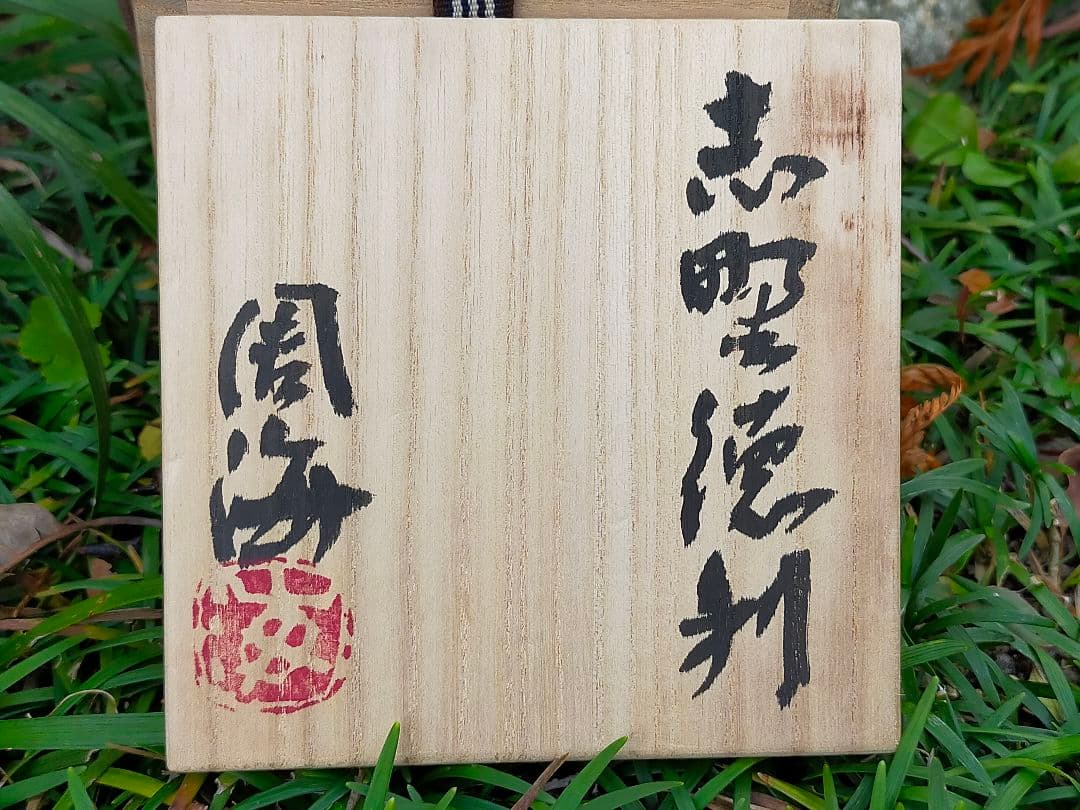 志野徳利
周海